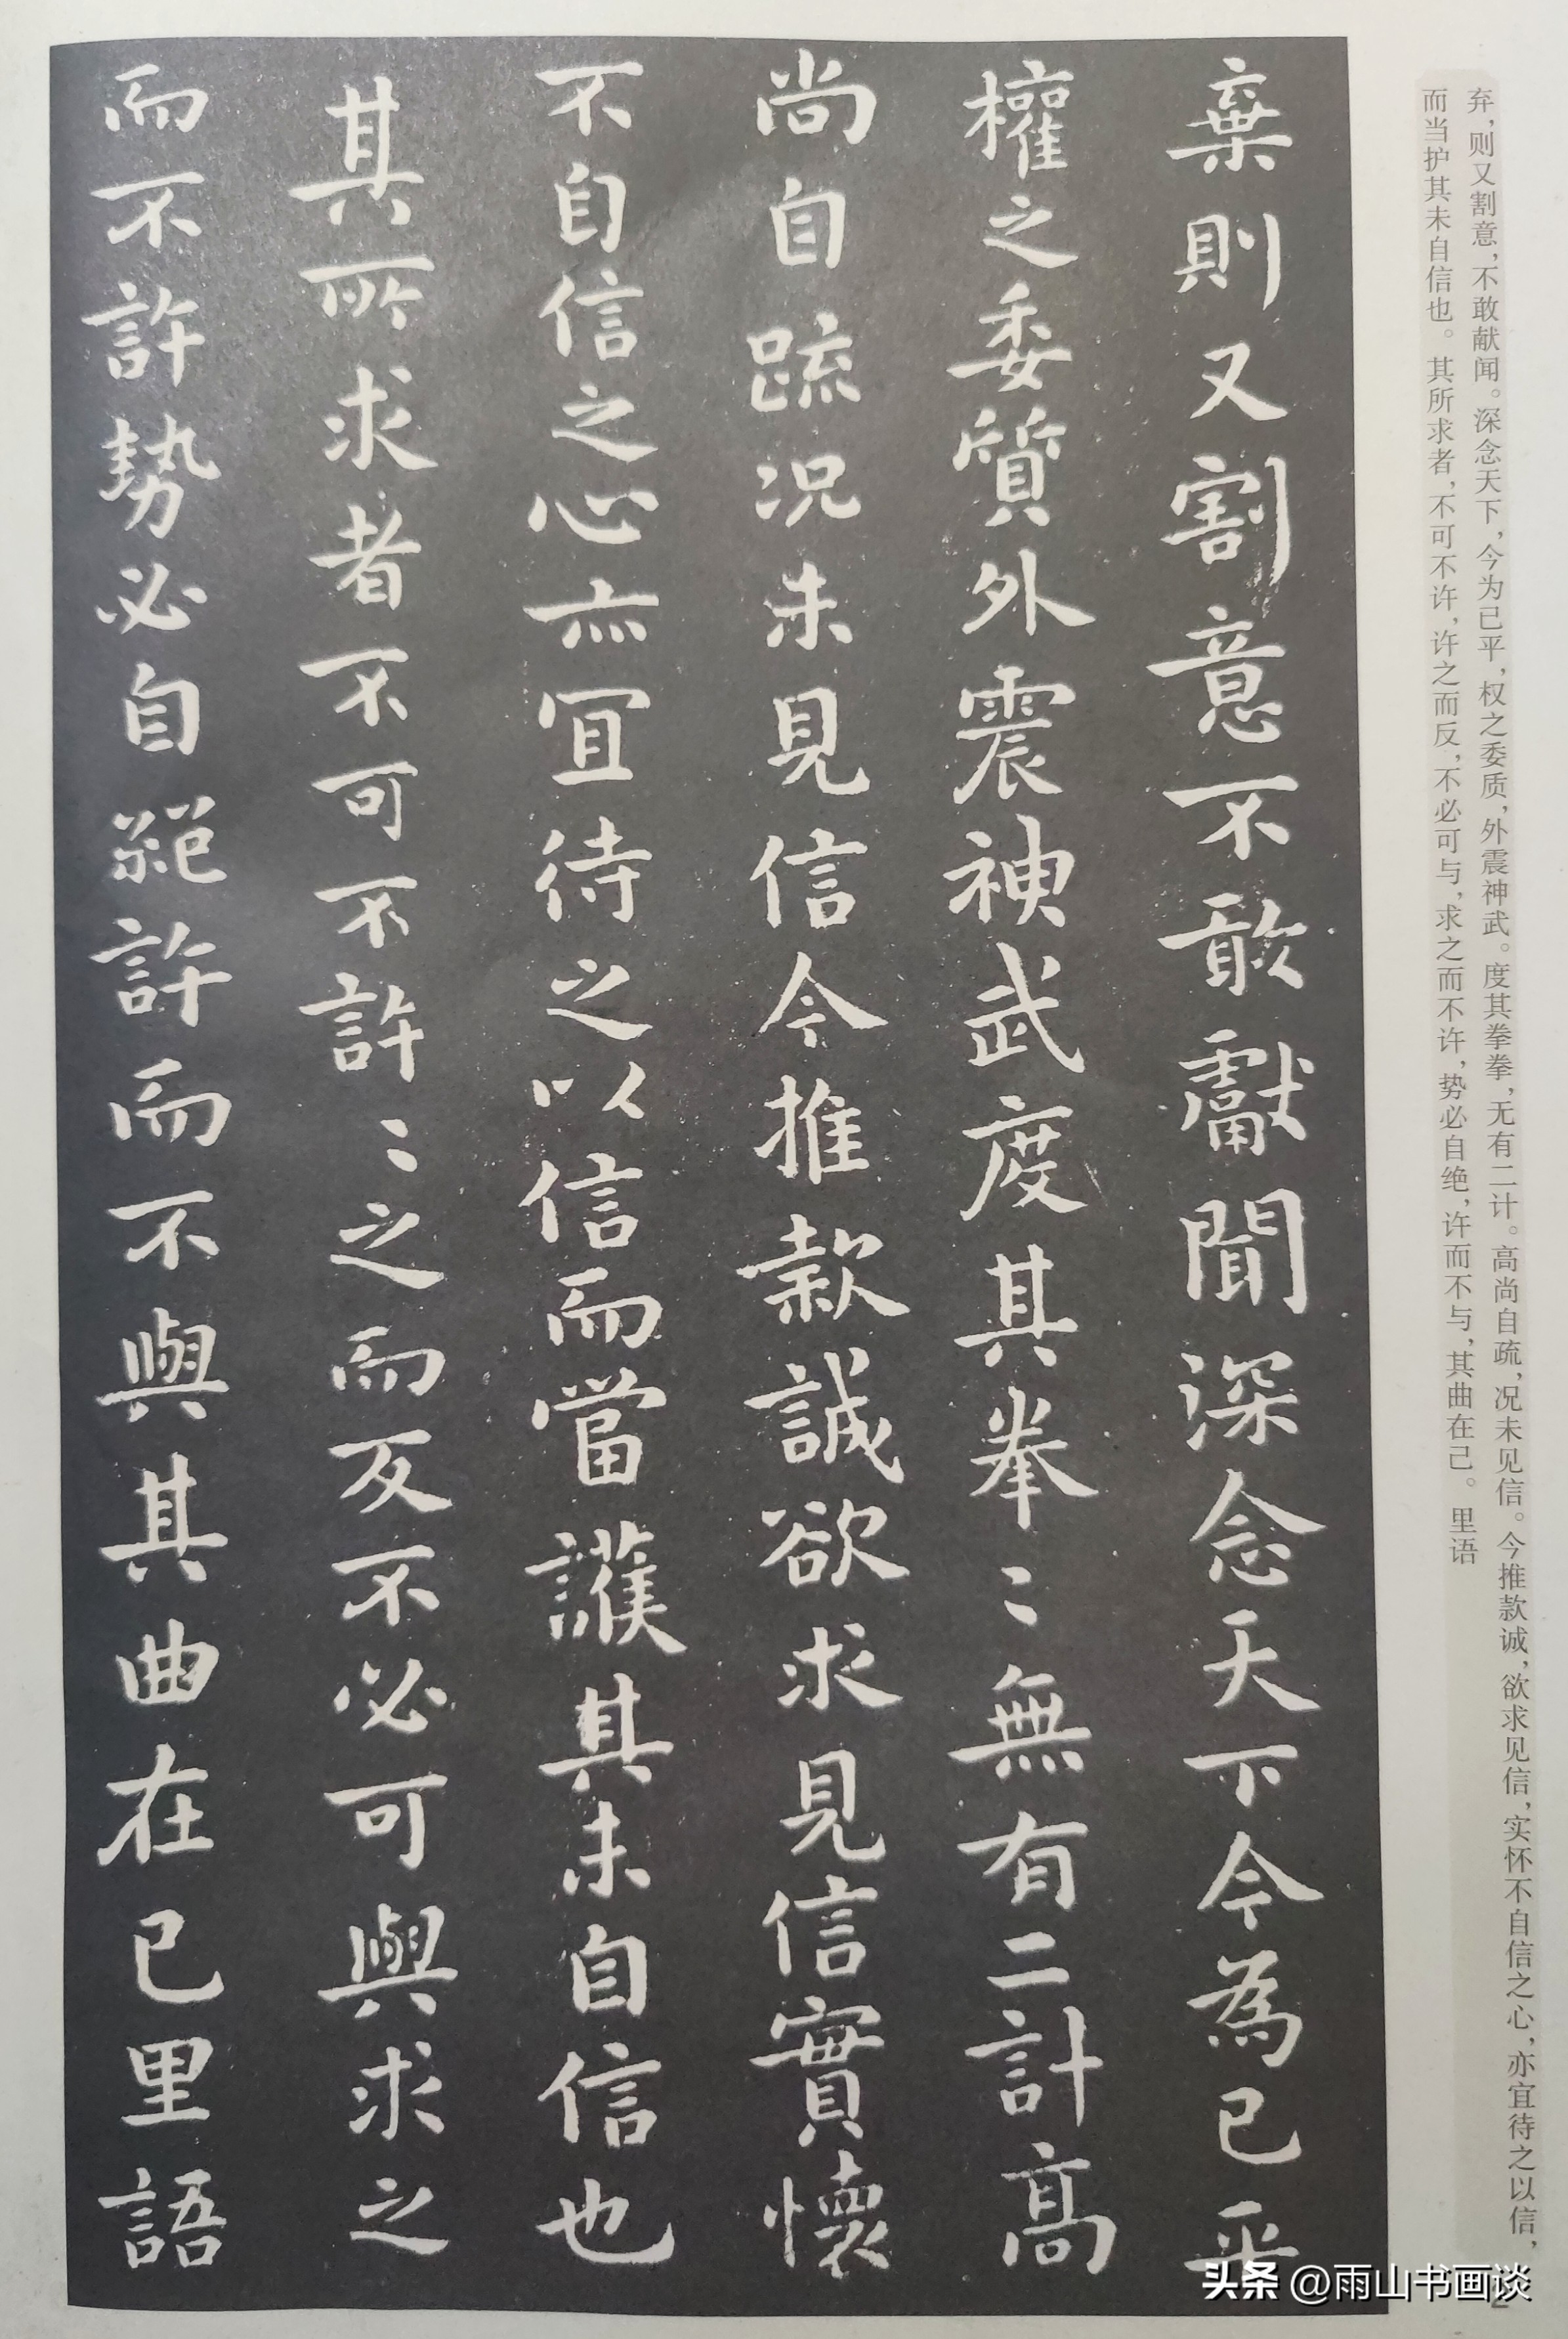 弃，则又割意，不敢献闻。深念天下，今为已平，权之委质，外震神武。度其拳拳，无有二计。高尚自疏，况未见信。今推款诚，欲求见信，实怀不自信之心，亦宜待之以信，
而当护其未自信也。其所求者，不可不许，许之而反，不必可与，求之而不许，势必自绝，许而不与，其曲在己。里语
棄則又割意不敢獻聞深念天下今為已平
權之委質外震神武度其拳〻無有二計高
尚自疏况未見信今推款誠欲求見信實懷
不自信之心亦宜待之以信而當護其未自信也
其所求者不可不許〻之而反不必可與求之
而不許勢必自絕許而不與其曲在己里語
头条 @雨山书画谈
2